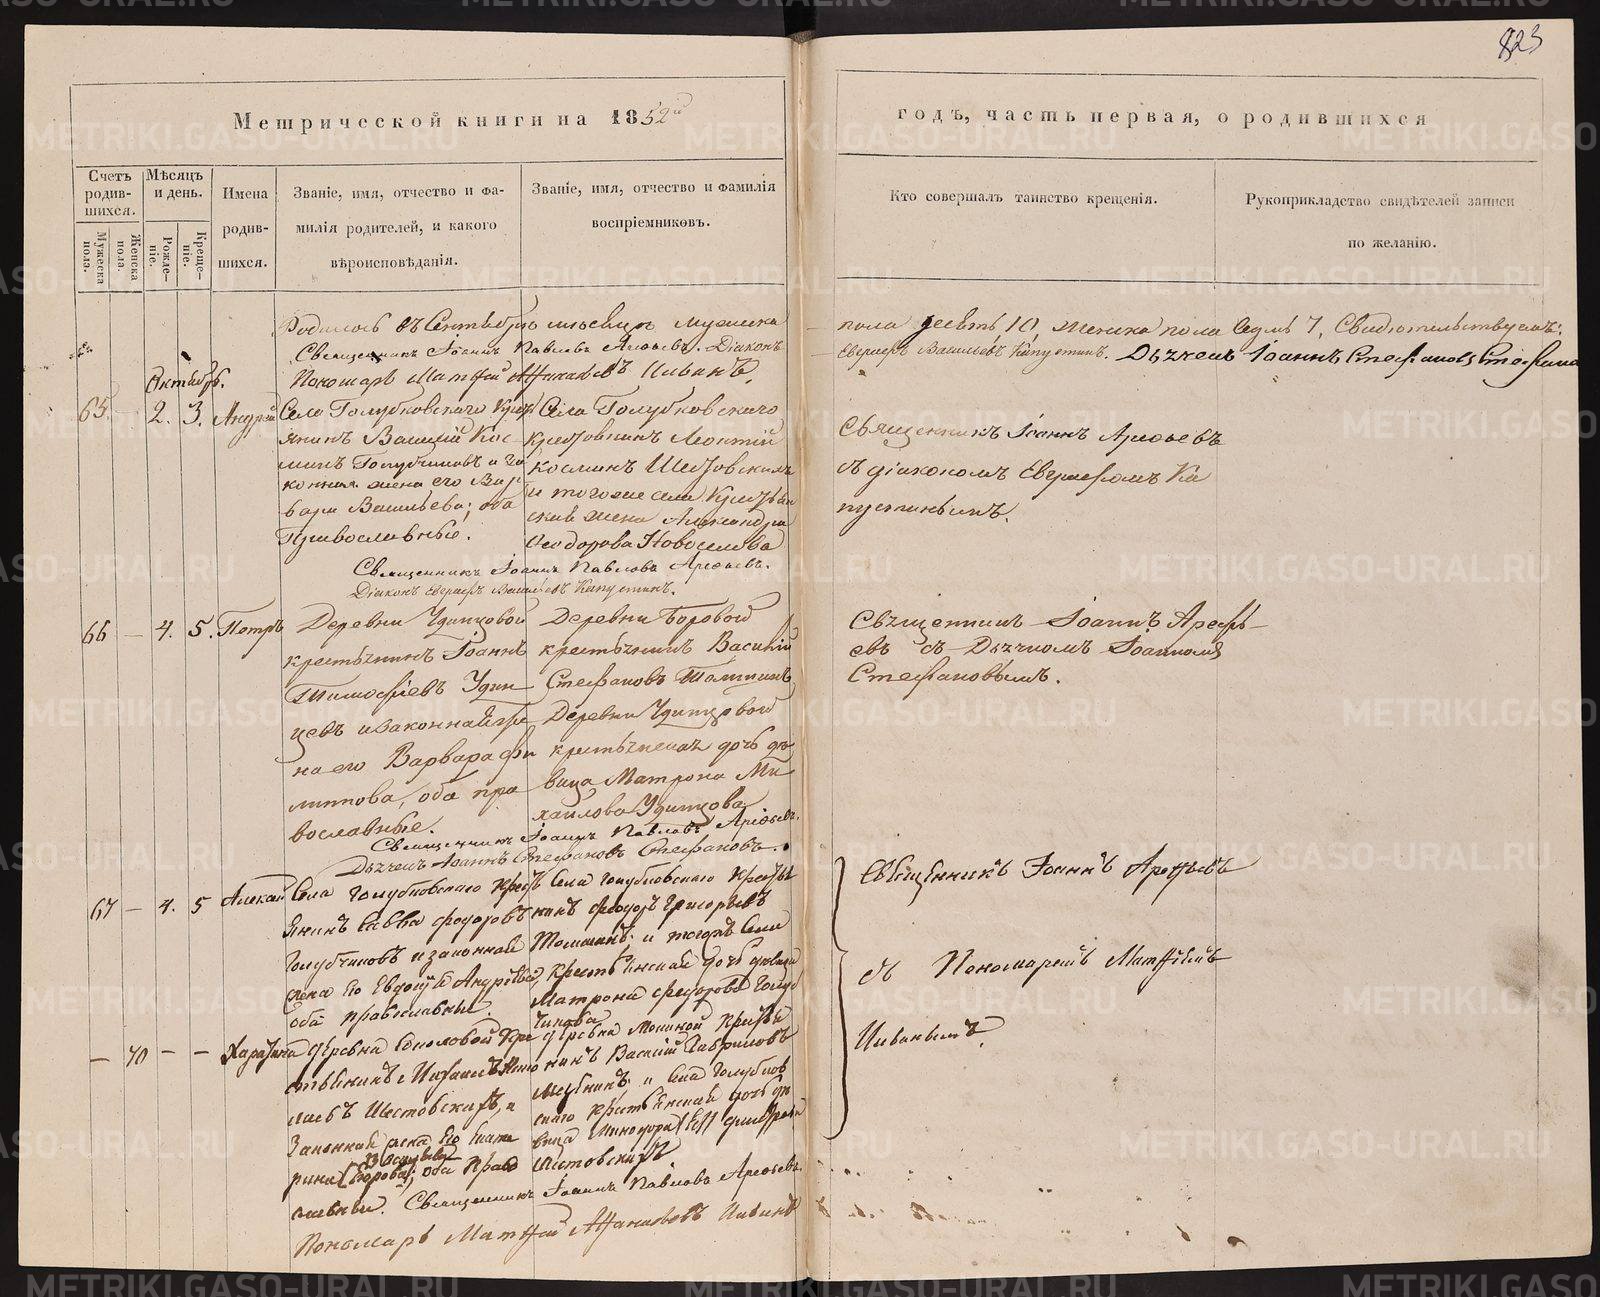 823
Метрической книги на 1852й
годъ, часть первая, о родившихся
Счетъ родив-шихся.
Мужеска пола.
Женска пола.
Мѣсяцъ и день.
Рожде-ніе.
Креще-ніе.
Имена
родив-
шихся.
Званіе, имя, отчество и фа-
милія родителей, и какого
вѣроисповѣданія.
Званіе, имя, отчество и фамилія
воспріемниковъ.
Кто совершалъ таинство крещенія.
Рукоприкладство свидѣтелей записи
по желанію.
Родилось въ Сентябрѣ мѣсяцѣ мужеска
пола десять 10, женска пола седмь 7, Свидѣтельствуемъ:
Священникъ Іоаннъ Павловъ Арефьевъ. Діаконъ
Евграфъ Васильевъ Капустинъ. Дьячекъ Іоаннъ Стефановъ Стефановъ
Пономарь Матѳей Аѳанасьевъ Ивинъ.
Октябрь.
65. 2. 3. Андрей
Села Голубковскаго Крест
янинъ Василій Кос
минъ Голубчиковъ и за
конная жена его Вар
вара Васильева; оба
Православные.
Села Голубковскаго
крестьянинъ Леонтій
Косминъ Шестовскихъ
и тогоже села Крестьян
ская жена Александра
Ѳеодорова Новоселова
Священникъ Іоаннъ Арефьевъ
съ діакономъ Евграфомъ Ка
пустинымъ.
Священникъ Іоаннъ Павловъ Арефьевъ.
Діаконъ Евграфъ Васильевъ Капустинъ.
66 — 4. 5. Петръ
Деревни Удинцовой
крестьянинъ Іоаннъ
Тимофѣевъ Удин
цевъ и законная же
на его Варвара Фи
липпова, оба пра
вославные.
Деревни Боровой
крестьянинъ Василій
Стефановъ
Деревни Удинцовой
крестьянская дочь дѣ
вица Матрона Ми
хайлова Удинцова
Священникъ Іоаннъ Арефь-
евъ съ Дьячкомъ Іоанномъ
Стефановымъ.
Священникъ Іоаннъ Павловъ Арефьевъ.
Дьячекъ Іоаннъ Стефановъ Стефановъ.
67 — 4. 5 Алексей
Села Голубковскаго Крест
янинъ Савва Федоровъ
Голубчиковъ и законная
жена его Евдокія Андрѣева,
оба православны.
Села Голубковскаго Крестья
нинъ Феодоръ Григорьевъ
и тогожъ Села
Крестьянская дочь дѣвица
Матрона Федорова Голуб
чикова
Священникъ Іоаннъ Арефьевъ
съ Пономаремъ Матѳѣемъ
Ивинымъ.
— 40 — — Харитина
деревни Кре
стьянинъ Михаилъ
Шестовскихъ, и
Законная жена его Екате
рина оба Право
славны.
деревни Крестья
нинъ Василій Гавриловъ
и Села Голубков
скаго крестьянская дочь дѣ
вица
Шестовскихъ
Священникъ Іоаннъ Павловъ Арефьевъ
Пономарь Матѳей Аѳанасьевъ Ивинъ
METRIKI.GASO-URAL.RU